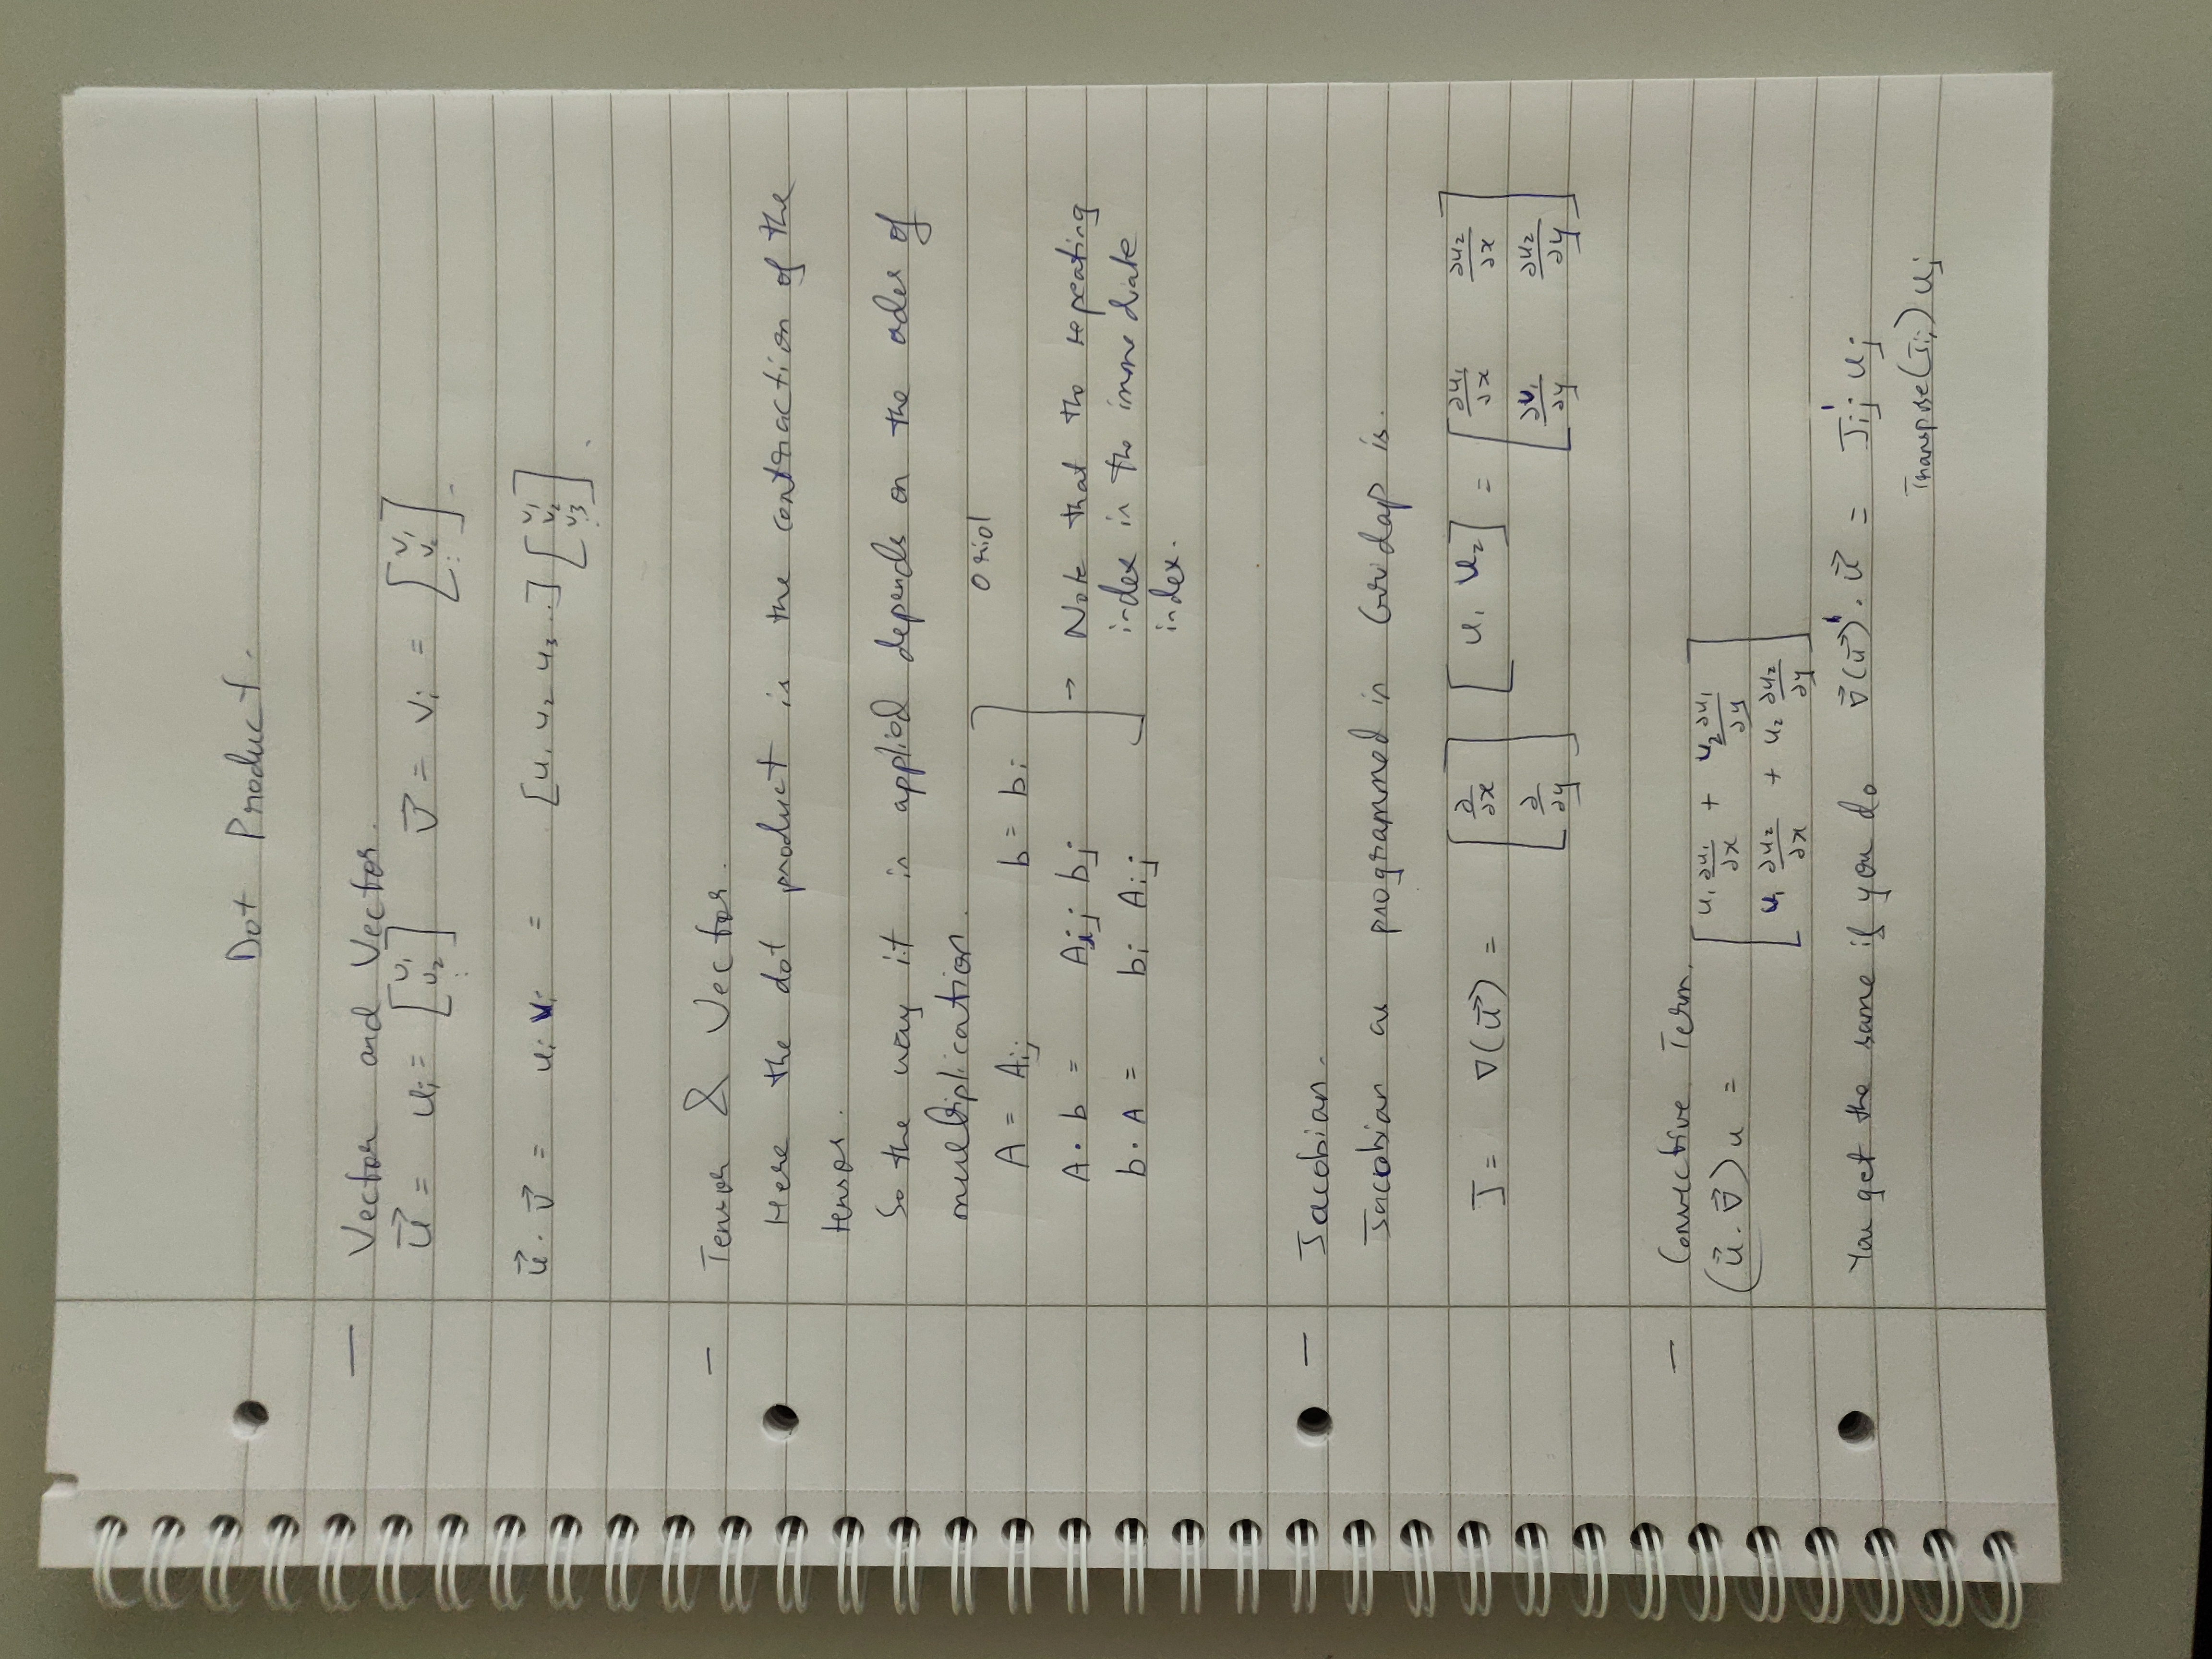 Dot Product.
— Vector and Vector.
$\vec{u} = u_i = \begin{bmatrix} u_1 \\ u_2 \\ \vdots \end{bmatrix} \quad \vec{v} = v_i = \begin{bmatrix} v_1 \\ v_2 \\ \vdots \end{bmatrix}$.
$\vec{u} \cdot \vec{v} = u_i v_i = [u_1 \; u_2 \; u_3 ..] \begin{bmatrix} v_1 \\ v_2 \\ v_3 \\ \vdots \end{bmatrix}$.
— Tensor & Vector.
Here the dot product is the contraction of the
tensor.
So the way it is applied depends on the oder of
multiplication.
Oriol
$A = A_{ij} \quad b = b_i$
$A \cdot b = A_{ij} b_j$ → Note that the repeating
$b \cdot A = b_i A_{ij}$ index is the immediate
index.
— Jacobian.
Jacobian as programmed in Gridap is.
$J = \nabla(\vec{u}) = \begin{bmatrix} \frac{\partial}{\partial x} \\ \frac{\partial}{\partial y} \end{bmatrix} \begin{bmatrix} u_1 & u_2 \end{bmatrix} = \begin{bmatrix} \frac{\partial u_1}{\partial x} & \frac{\partial u_2}{\partial x} \\ \frac{\partial u_1}{\partial y} & \frac{\partial u_2}{\partial y} \end{bmatrix}$
— Convective Term.
$(\vec{u} \cdot \vec{\nabla}) u = \begin{bmatrix} u_1 \frac{\partial u_1}{\partial x} + u_2 \frac{\partial u_1}{\partial y} \\ u_1 \frac{\partial u_2}{\partial x} + u_2 \frac{\partial u_2}{\partial y} \end{bmatrix}$
You get the same if you do $\vec{\nabla}(\vec{u})' \cdot \vec{u} = J'_{ij} u_j$
Transpose$(J_{ij}) u_j$